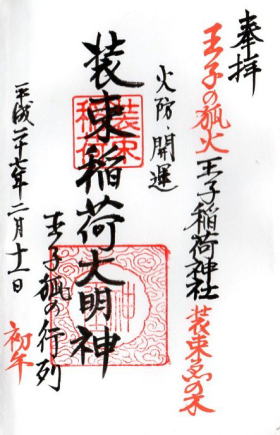 奉拝
王子の狐火
王子稲荷神社
装束ゑの木
火防・開運
装束稲荷大明神
装束稲荷
王子狐の行列
平成二十七年二月十一日
初午